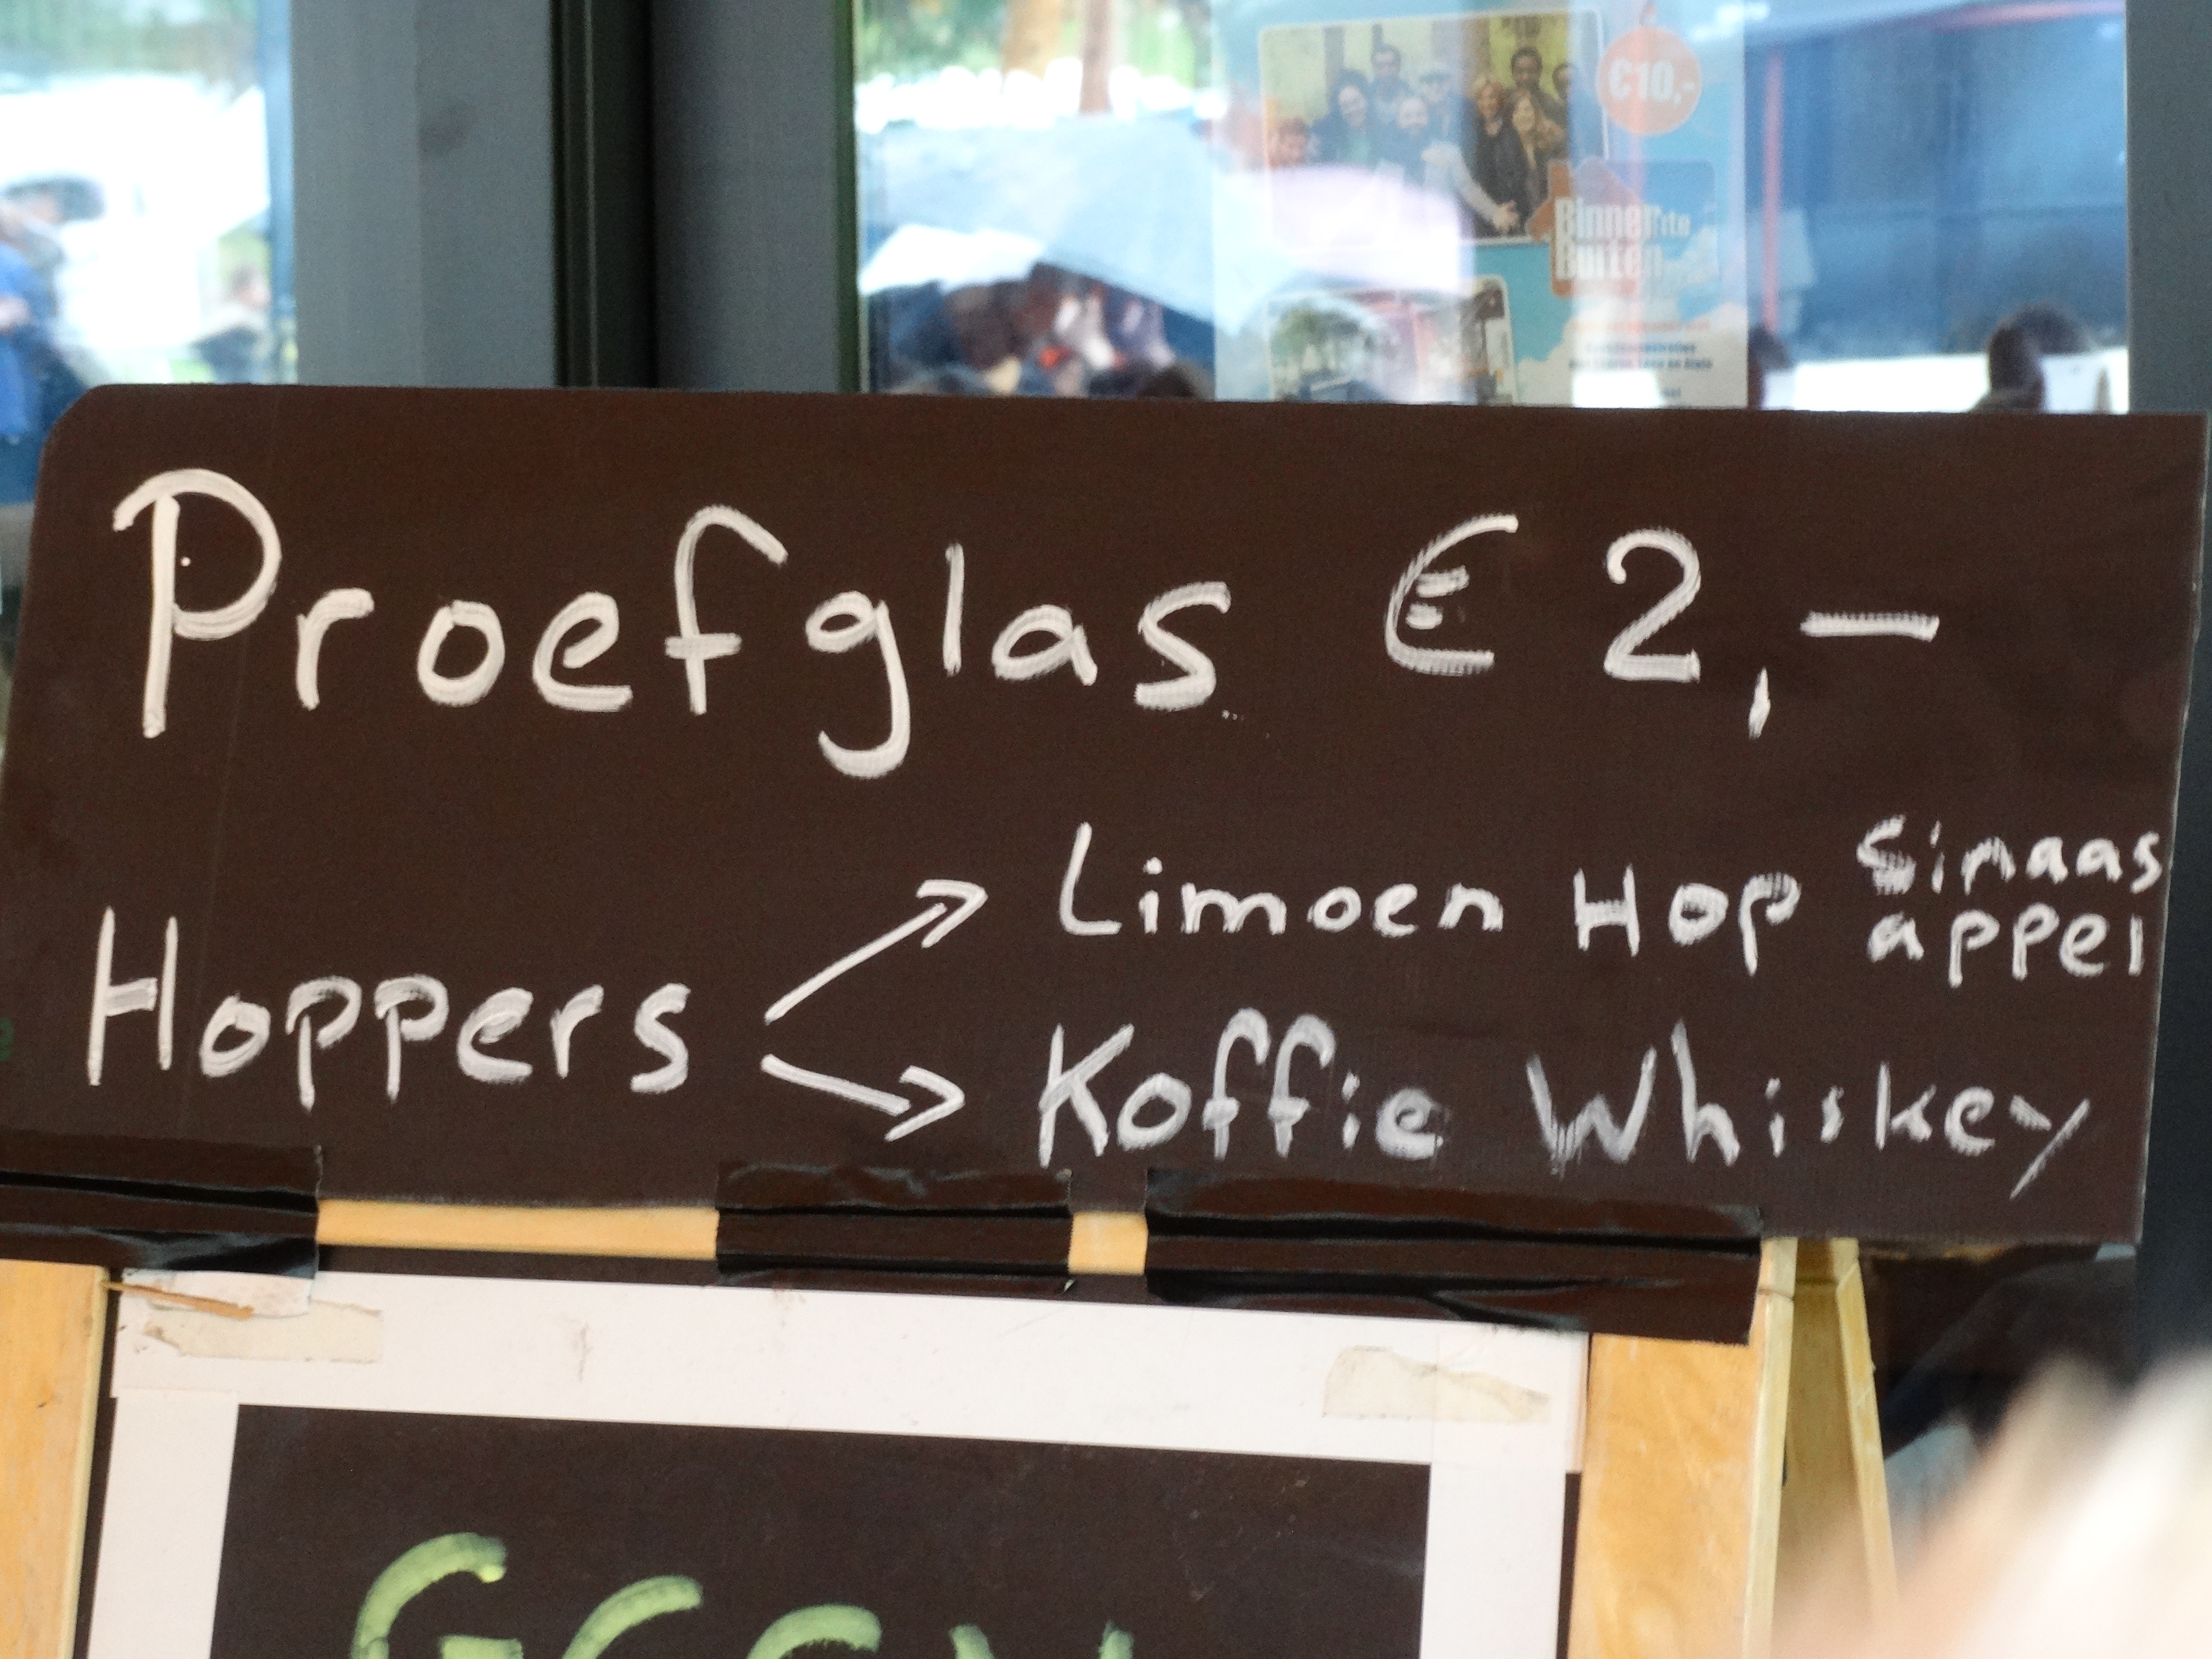 €10,-
Binnenste
Buiten
Proefglas € 2,-
Limoen Hop Sinaas
appel
Hoppers
Koffie Whiskey